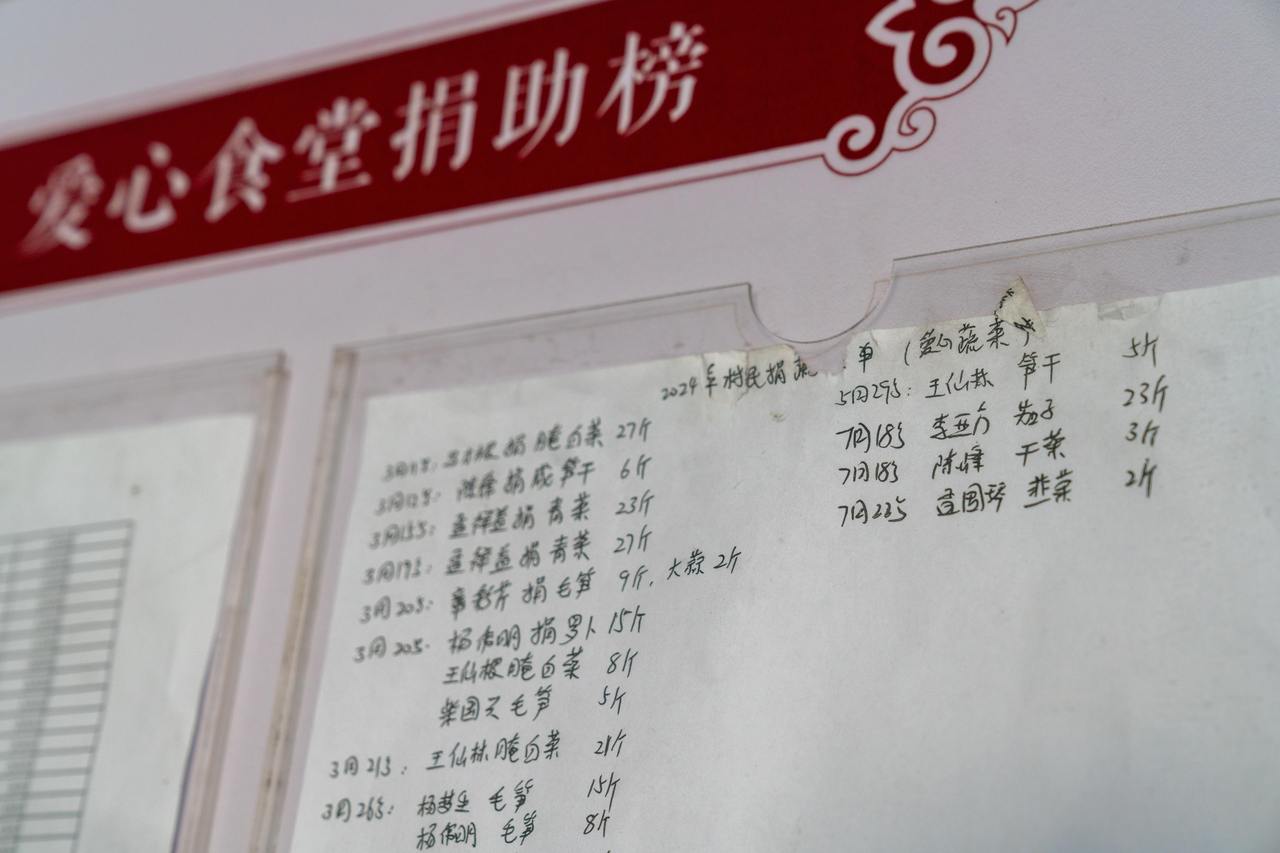 爱心食堂捐助榜
2024年村民捐蔬 单（爱心蔬菜）
3月11号: 捐腌白菜 27斤
3月12号: 捐咸笋干 6斤
3月15号: 捐青菜 23斤
3月19号: 捐青菜 27斤
3月20号: 章彩芹捐毛笋 9斤, 大蒜2斤
3月20号. 杨伟明捐罗卜 15斤
王仙根腌白菜 8斤
柴园 毛笋 5斤
3月21号: 王仙林腌白菜 21斤
3月26号: 杨 毛笋 15斤
杨伟明 毛笋 8斤
5月29号: 王仙林 笋干 5斤
7月18号 李亚 茄子 23斤
7月18号 陈峰 干菜 3斤
7月22号 国琴 韭菜 2斤